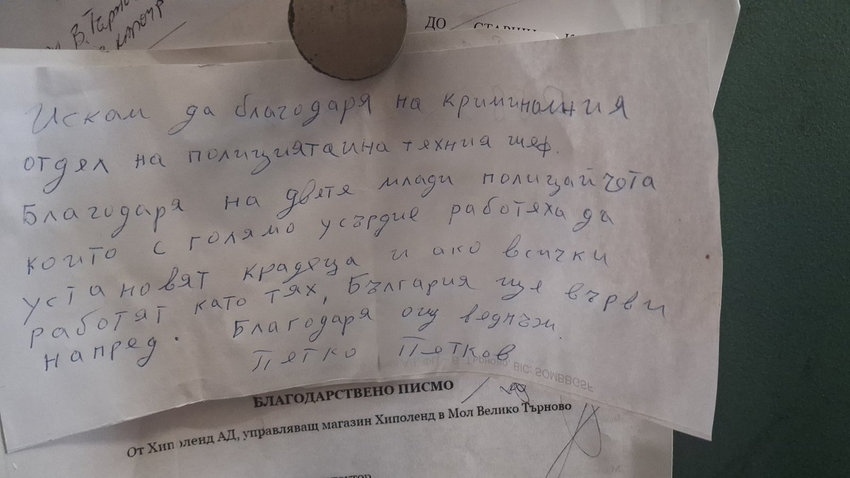 В. Търно
ДО
Искам да благодаря на криминалния
отдел на полицията и на техния шеф.
Благодаря на двете млади полицайчета
които с голямо усърдие работяха да
установят крадеца и ако всички
работят като тях, България ще върви
напред. Благодаря още веднъж.
Петко Петков
BIC: SOMBBGSF
БЛАГОДАРСТВЕНО ПИСМО
От Хиполенд АД, управляващ магазин Хиполенд в Мол Велико Търново